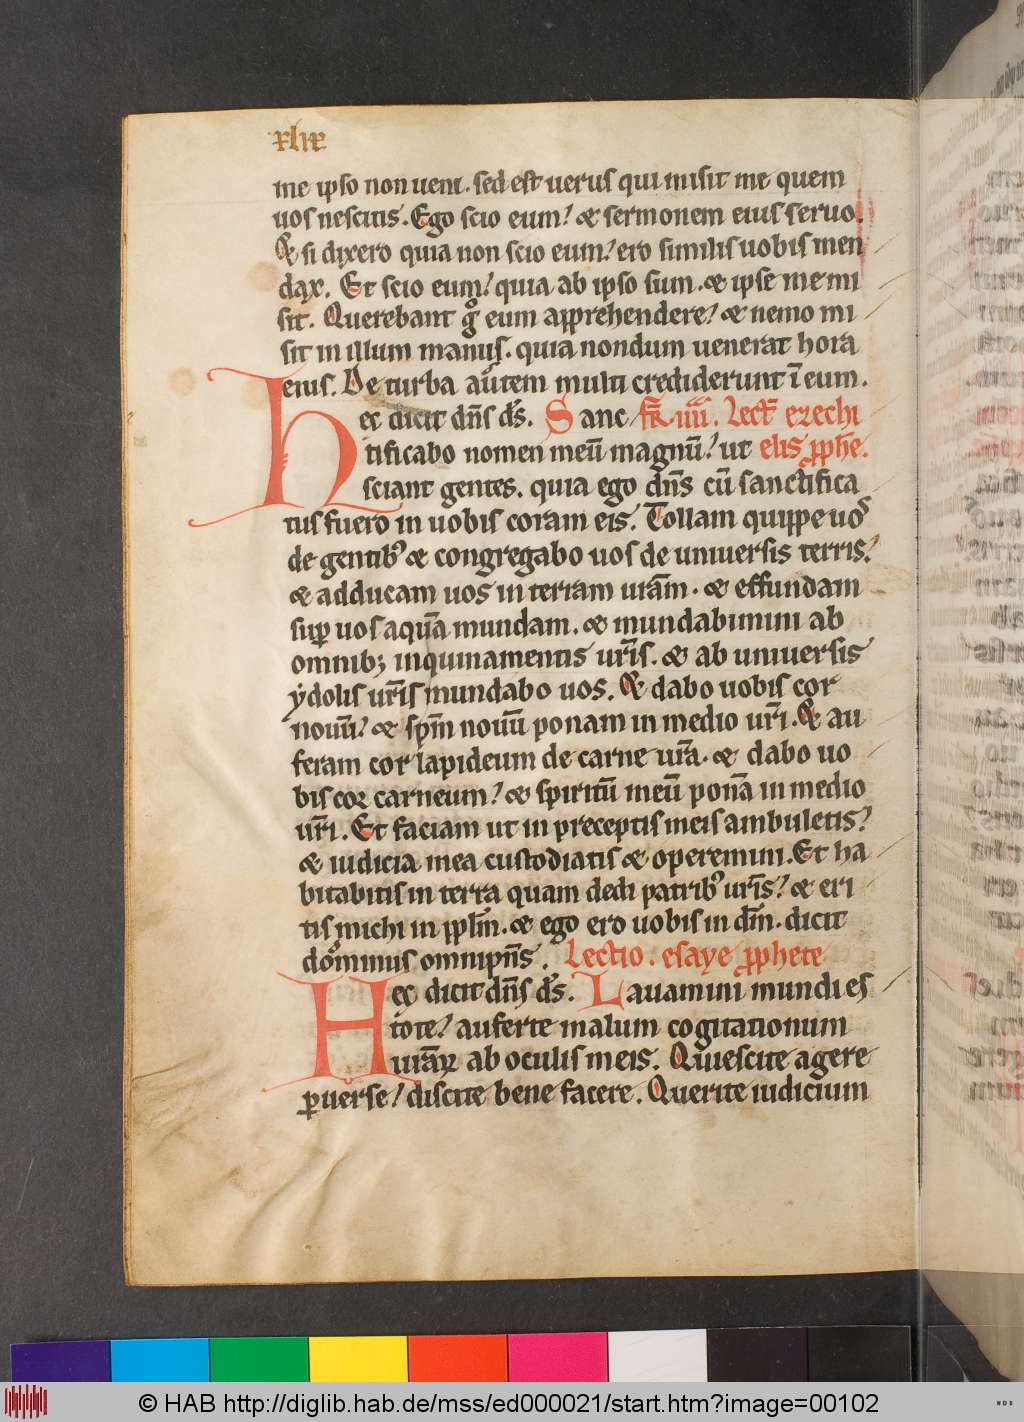 xlix
me ipso non ueni. sed est uerus qui misit me quem
uos nescitis. Ego scio eum? & sermonem eius seruo.
Et si dixero quia non scio eum? ero similis uobis men
dax. Et scio eum? quia ab ipso sum. & ipse me mi
sit. Querebant gͦ eum apprehendere? & nemo mi
sit in illum manus. quia nondum uenerat hora
eius. De turba autem multi crediderunt ī eum.
Hec dicit dn̄s ds̄. Sanc fr̄ iiii. Lect̄ ezechi
tificabo nomen meū magnū? ut elis pphe.
sciant gentes. quia ego dn̄s cū sanctifica
tus fuero in uobis coram eis. Tollam quippe uos
de gentibꝰ & congregabo uos de uniuersis terris?
& adducam uos in terram urām. & effundam
sup uos aquā mundam. & mundabimini ab
omnibꝫ inquinamentis urīs. & ab uniuersis
ydolis urīs mundabo uos. Et dabo uobis cor
nouū? & spm̄ nouū ponam in medio urī. Et au
feram cor lapideum de carne urā. & dabo uo
bis cor carneum? & spiritū meū ponā in medio
urī. Et faciam ut in preceptis meis ambuletis?
& iudicia mea custodiatis & operemini. Et ha
bitabitis in terra quam dedi patribꝰ urīs? & eri
tis michi in pplm̄. & ego ero uobis in dm̄. dicit
dominus omnipn̄s. Lectio. esaye pphete
Hec dicit dn̄s ds̄. Lauamini mundi es
tote? auferte malum cogitationum
urāꝝ ab oculis meis. Quiescite agere
ꝑuerse? discite bene facere. Querite iudicium
© HAB http://diglib.hab.de/mss/ed000021/start.htm?image=00102